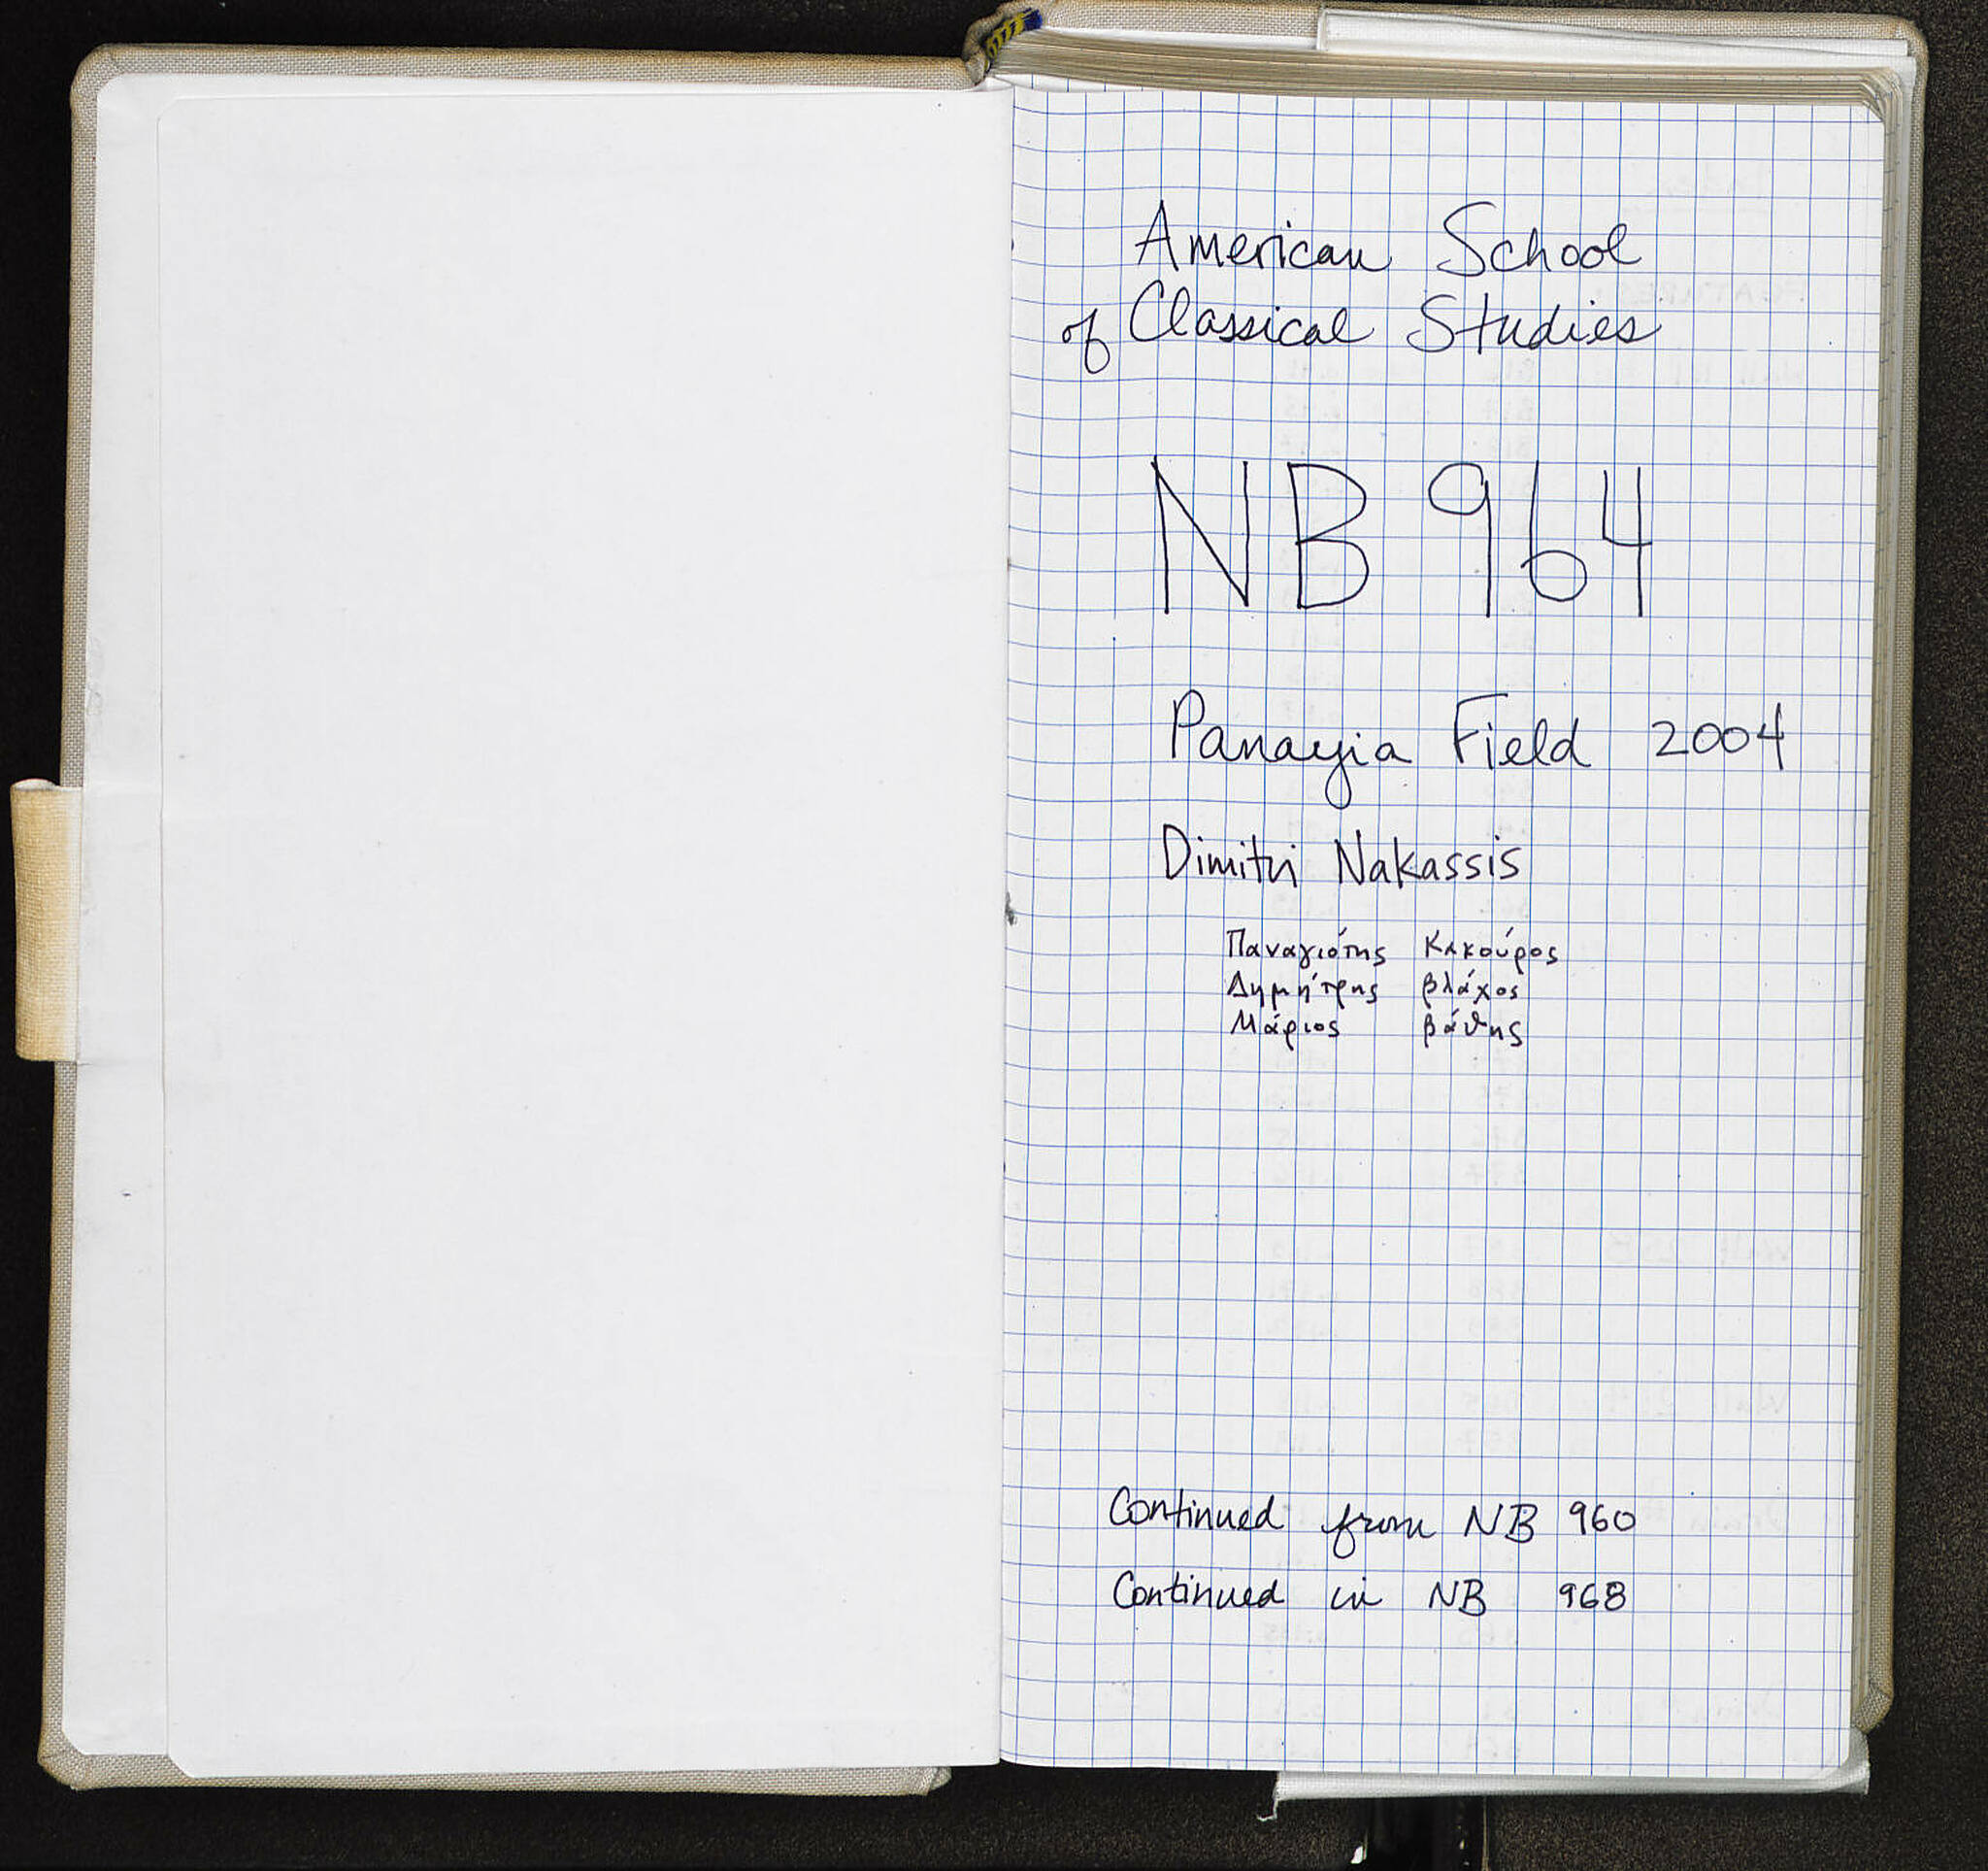 American School
of Classical Studies
NB 964
Panayia Field 2004
Dimitri Nakassis
Παναγιότης Κακούρος
Δημήτρης βλάχος
Μάριος βάθης
Continued from NB 960
Continued in NB 968